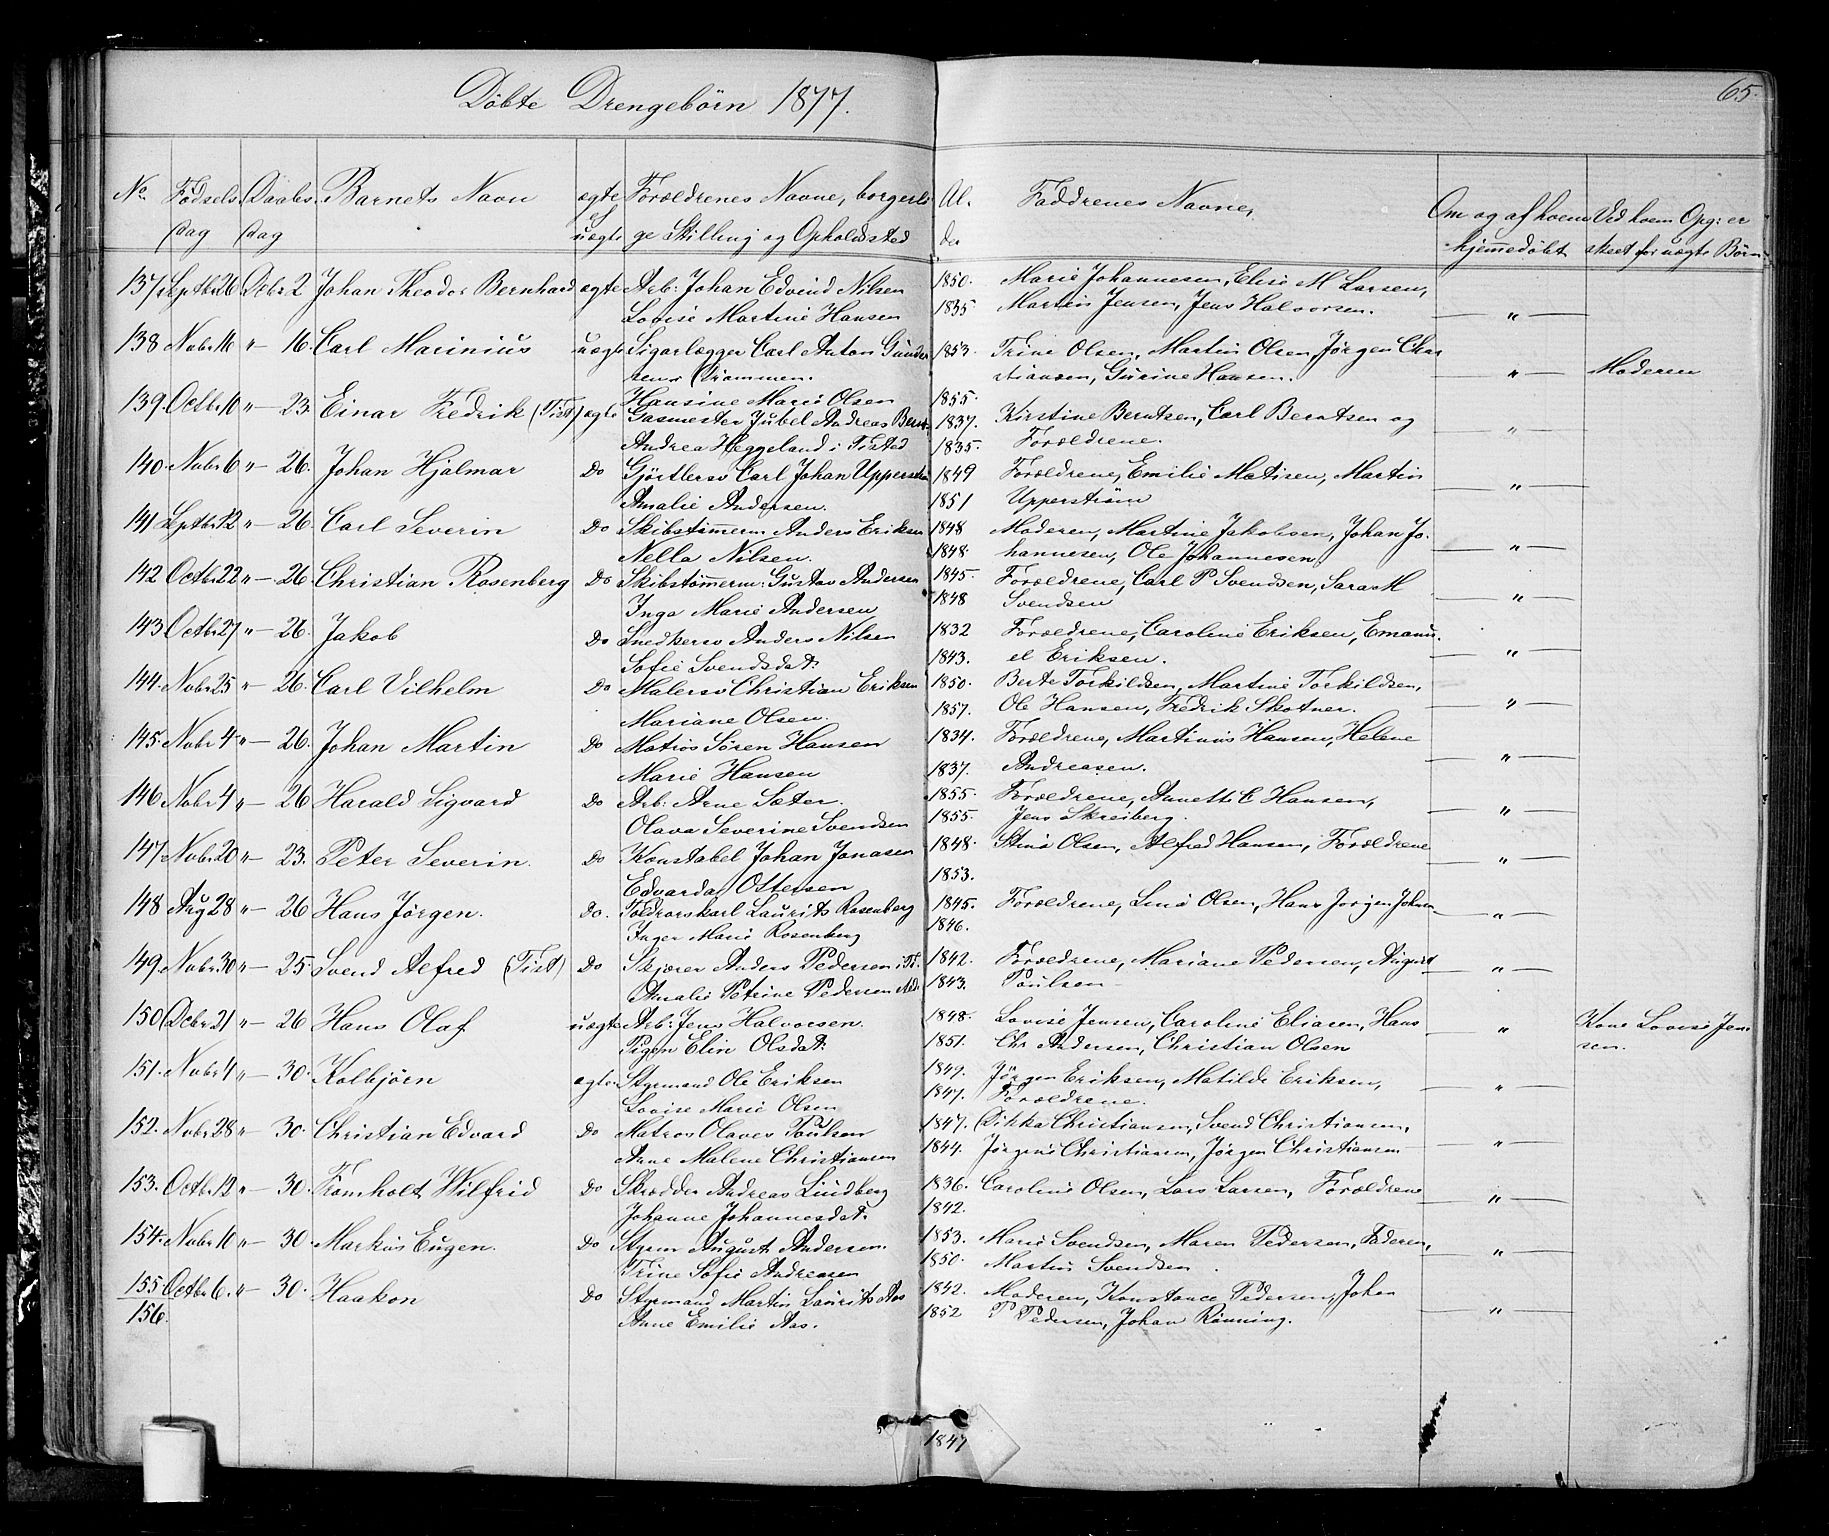 Döbte Drengebörn 1877.
65.
No. Födsels Daabs Barnets Navn ægte Forældrenes Navne, borgerli Al. Faddrenes Navne, Om og af hvem Ved hvem Opg: er
dag dag el. uægte ge Stilling og Opholdssted der hjemmedöbt skeet for uægte Börn
137. Septbr 26 Dcbr 2 Johan Theodor Bernhard ægte Arb: Johan Edvind Nilsen 1850. Marie Johannesen, Elise M Larsen,
Lovise Martine Hansen 1835 Martin Jensen, Jens Halvorsen. — " —
138 Nobr 16 " — 16. Carl Marinius uægte Sigarlægger Carl Anton Gunder 1853. Trine Olsen, Martin Olsen, Jörgen Chri
sen Drammen. stiansen, Gurine Hansen. — " — Moderen
Hansine Marie Olsen 1855.
139. Octbr 10 " — 23. Einar Fredrik (Tist) ægte Gasmester Jubel Andreas Bernt 1837. Kirstine Berntsen, Carl Berntsen og
Andrea Heggeland i Tisted 1835. Forældrene. — " —
140. Nobr 6 " — 26. Johan Hjalmar Do Gjörtlersv Carl Johan Upperström 1849 Forældrene, Emilie Matisen, Martin
Amalie Andersen. 1851 Upperström — " —
141 Septbr 12 " — 26. Carl Severin Do Skibstömmerm Anders Eriksen 1848 Moderen, Martine Jakobsen, Johan Jo
Nella Nilsen. 1848. hannesen, Ole Johannesen — " —
142 Octbr 22 " — 26. Christian Rosenberg Do Skibstömmerm: Gustav Andersen 1845. Forældrene, Carl P Svendsen, Sara M
Inga Marie Andersen 1848 Svendsen — " —
143 Octbr 27 " — 26. Jakob Do Snedkersv Anders Nilsen 1832 Forældrene, Caroline Eriksen, Emanu
Sofie Svendsdat: 1843. el Eriksen. — " —
144. Nobr 25 " — 26. Carl Vilhelm Do Malersv Christian Eriksen 1850. Berte Torkildsen, Martine Torkildsen,
Mariane Olsen. 1857. Ole Hansen, Fredrik Skotner. — " —
145. Nobr 4 " — 26. Johan Martin Do Matros Sören Hansen 1834. Forældrene, Martinus Hansen, Helene
Marie Hansen 1837. Andreasen. — " —
146 Nobr 4 " — 26 Harald Sigvard Do Arb: Arne Sæter. 1855. Forældrene, Annette C Hansen,
Olava Severine Svendsen 1855. Jens Skreiberg. — " —
147. Nobr 20 " — 23. Peter Severin. Do Konstabel Johan Jonasen 1848. Stine Olsen, Alfred Hansen, Forældrene
Edvarda Ottersen 1853. — " —
148 Aug 28 " — 26 Hans Jörgen. Do. Toldrorskarl Laurits Rosenberg 1845. Forældrene, Line Olsen, Hans Jorgen Johnsen
Inger Marie Rosenberg 1846. — " —
49. Nobr 30 " — 25. Svend Alfred (Tist) Do Skjærer Anders Pedersen i T. 1842. Forældrene, Mariane Pedersen, August
Amalie Petrine Pedersen 1843. Poulsen — " —
150 Dcbr 21 " — 26 Hans Olaf uægte Arb: Jens Halvorsen. 1848. Lovise Jensen, Caroline Eliasen, Hans Kone Lovise Jen
Pigen Elin Olsdat: 1851. Chr Andersen, Christian Olsen — " — sen.
151. Nobr 4 " — 30. Kolbjören ægte Styrmand Ole Eriksen 1849. Jörgen Eriksen, Matilde Eriksen,
Lovise Marie Olsen 1847. Forældrene. — " —
152. Nobr 28 " — 30. Christian Edvard Do Matros Olaves Poulsen 1847. Dikka Christiansen, Svend Christiansen,
Anne Malene Christiansen 1844. Jörgine Christiansen, Jörgen Christiansen — " —
153. Octbr 12 " — 30. Fromholt Wilfrid Do Skrædder Andreas Lindberg 1836. Caroline Olsen, Lars Larsen, Forældrene
Johanne Johannesdat: 1842. — " —
154. Nobr 10 " — 30. Markus Eugen. Do Styrm August Andersen. 1853. Marie Svendsen, Maren Pedersen, Faderen,
Trine Sofie Andreasen 1850. Martin Svendsen. — " —
155 Octbr 6. " — 30. Haakon Do Styrmand Martin Laurits Aas 1842. Moderen, Konstance Pedersen, Johan
156. Anne Emilie Aas. 1852 P Pedersen, Johan Rönning. — " —
1847